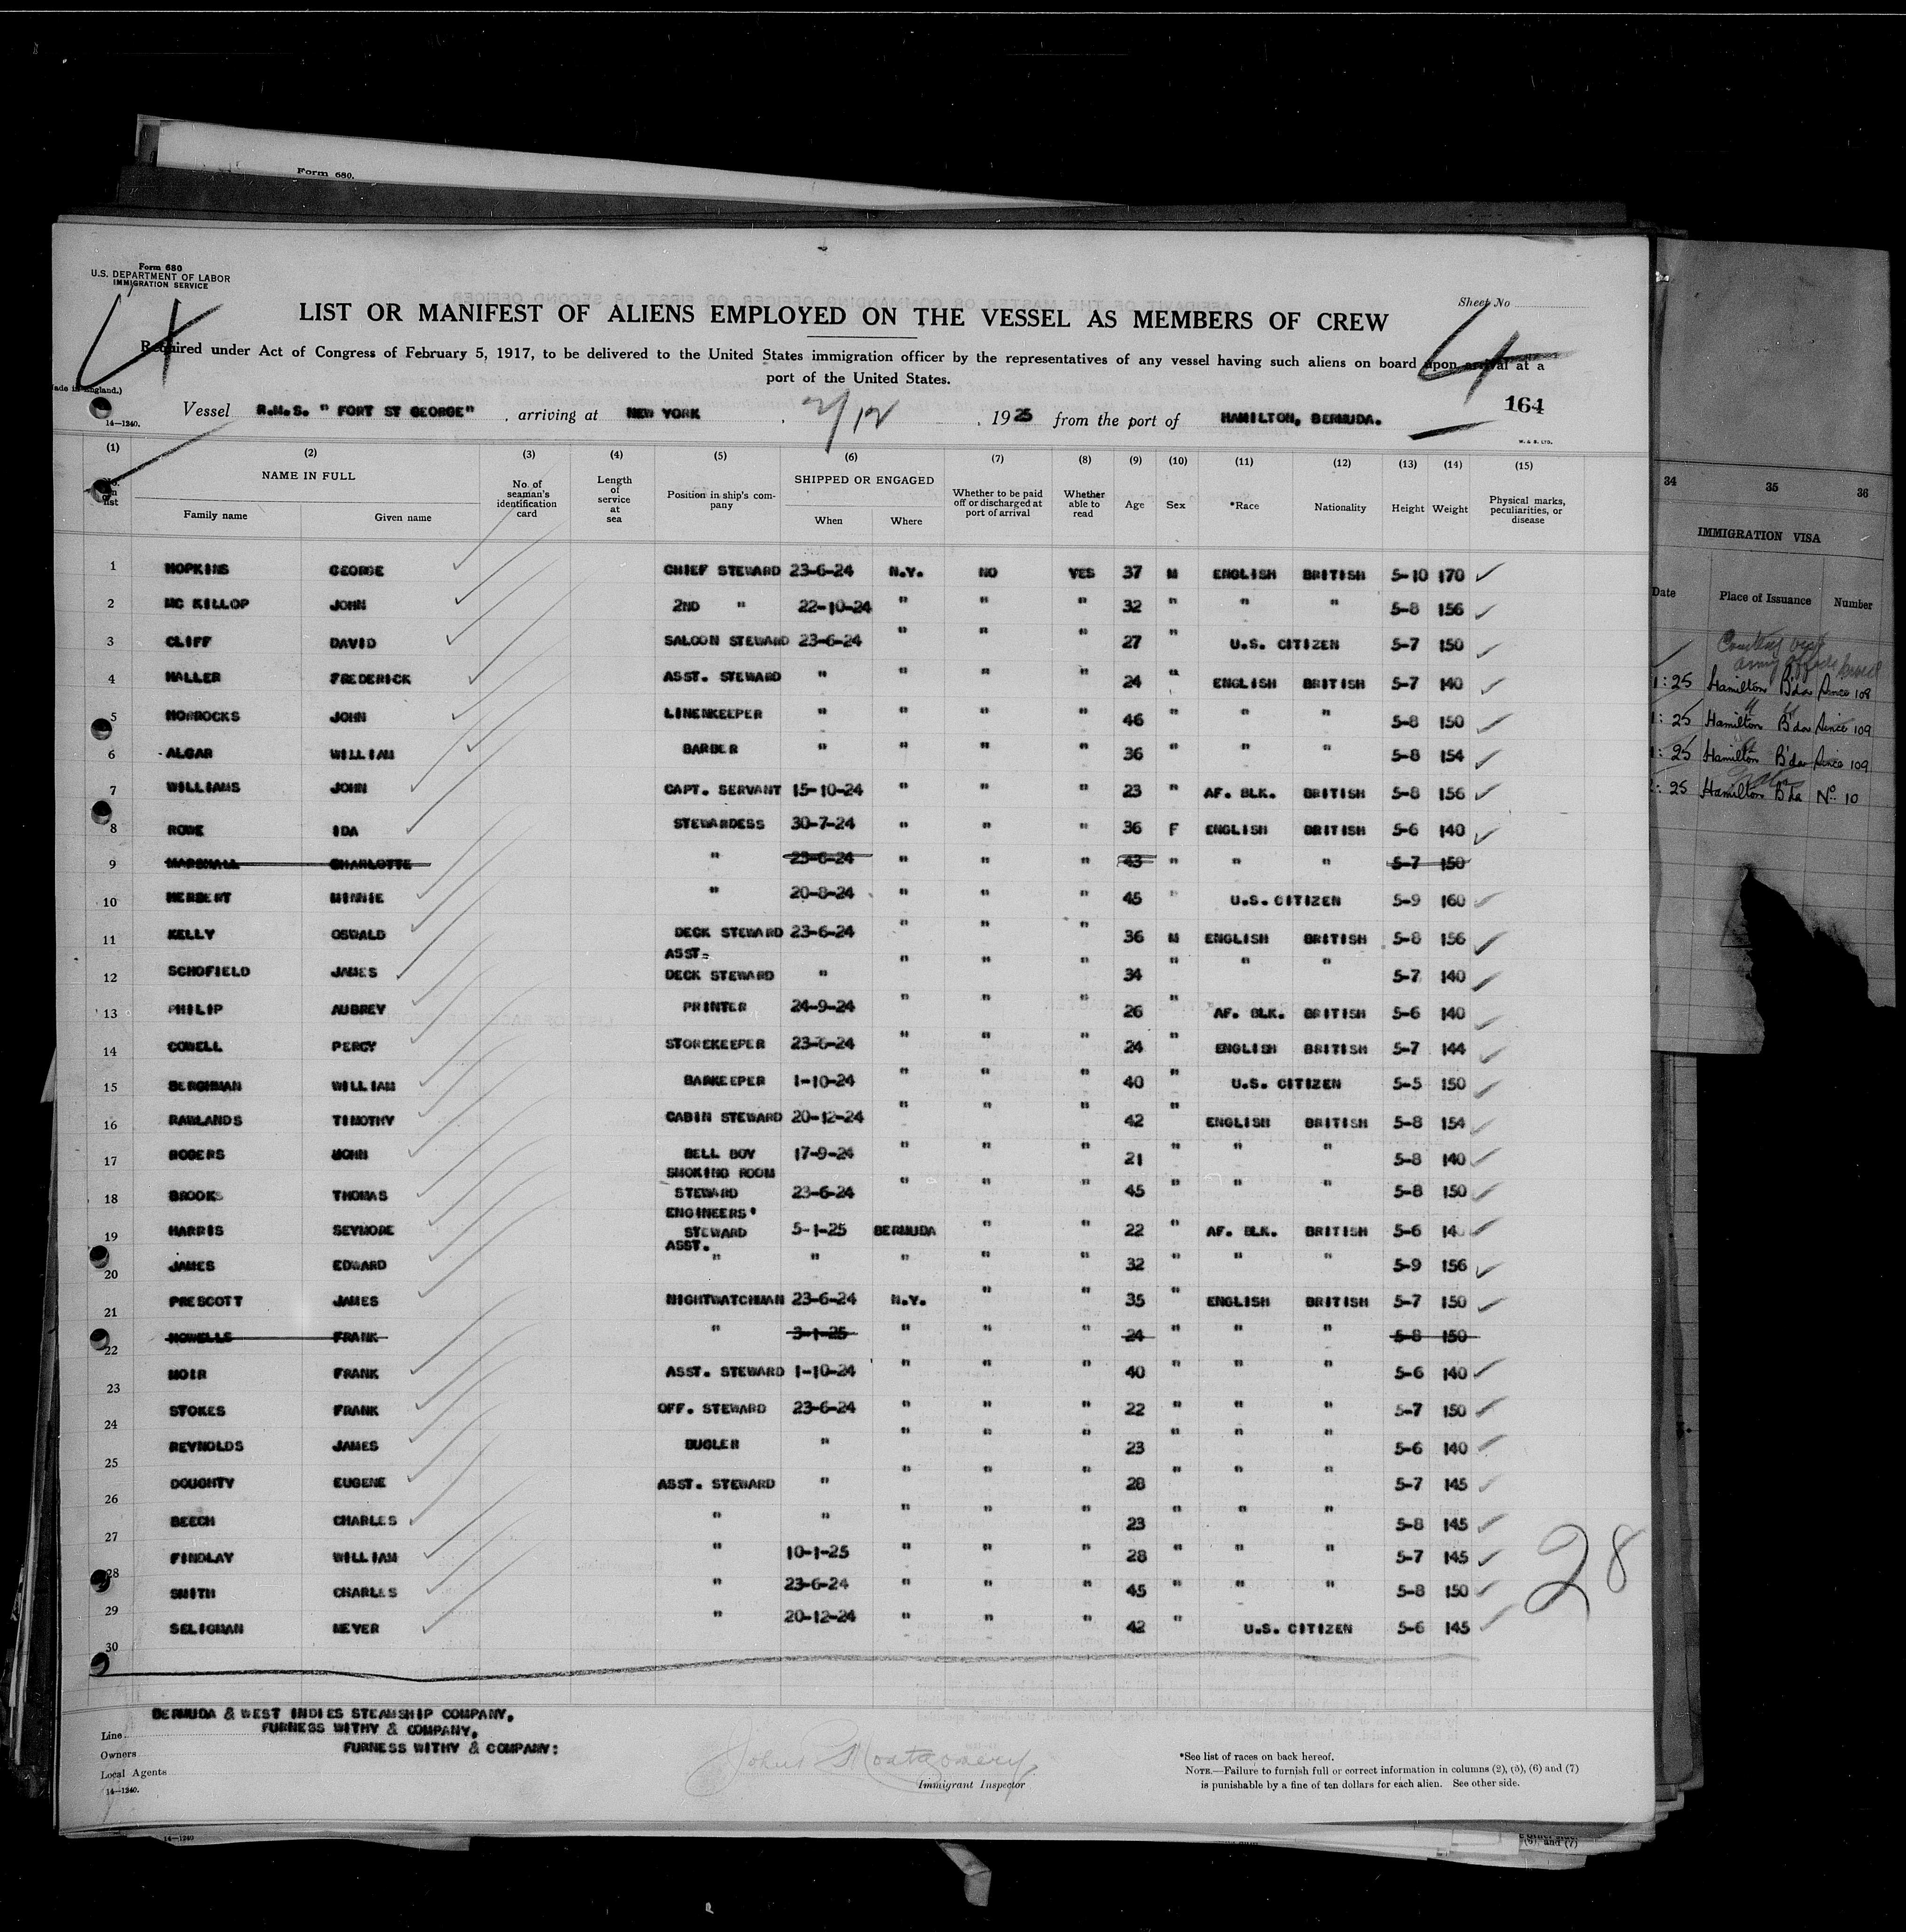 Form 680.
Form 680
U.S. DEPARTMENT OF LABOR
IMMIGRATION SERVICE
4
Sheet No
LIST OR MANIFEST OF ALIENS EMPLOYED ON THE VESSEL AS MEMBERS OF CREW
Required under Act of Congress of February 5, 1917, to be delivered to the United States immigration officer by the representatives of any vessel having such aliens on board upon arrival at a
port of the United States.
4
14—1240.
Vessel R.M.S. " FORT ST GEORGE" , arriving at NEW YORK , 2/12 , 1925 from the port of HAMILTON, BERMUDA.
164
M. & S. LTD.
(1) (2) (3) (4) (5) (6) (7) (8) (9) (10) (11) (12) (13) (14) (15)
No. on list NAME IN FULL Family name Given name No. of seaman's identification card Length of service at sea Position in ship's company SHIPPED OR ENGAGED When Where Whether to be paid off or discharged at port of arrival Whether able to read Age Sex *Race Nationality Height Weight Physical marks, peculiarities, or disease
1 HOPKINS GEORGE CHIEF STEWARD 23-6-24 N.Y. NO YES 37 M ENGLISH BRITISH 5-10 170
2 MC KILLOP JOHN 2ND " 22-10-24 " " " 32 " " " 5-8 156
3 CLIFF DAVID SALOON STEWARD 23-6-24 " " " 27 " U.S. CITIZEN 5-7 150
4 HALLER FREDERICK ASST. STEWARD " " " " 24 " ENGLISH BRITISH 5-7 140
5 HORROCKS JOHN LINENKEEPER " " " " 46 " " " 5-8 150
6 ALGAR WILLIAM BARBER " " " " 36 " " " 5-8 154
7 WILLIAMS JOHN CAPT. SERVANT 15-10-24 " " " 23 " AF. BLK. BRITISH 5-8 156
8 ROWE IDA STEWARDESS 30-7-24 " " " 36 F ENGLISH BRITISH 5-6 140
9 MARSHALL CHARLOTTE " 23-6-24 " " " 43 " " " 5-7 150
10 HERBERT MINNIE " 20-8-24 " " " 45 " U.S. CITIZEN 5-9 160
11 KELLY OSWALD DECK STEWARD 23-6-24 " " " 36 M ENGLISH BRITISH 5-8 156
12 SCHOFIELD JAMES ASST. DECK STEWARD " " " " 34 " " " 5-7 140
13 PHILIP AUBREY PRINTER 24-9-24 " " " 26 " AF. BLK. BRITISH 5-6 140
14 COWELL PERCY STOREKEEPER 23-6-24 " " " 24 " ENGLISH BRITISH 5-7 144
15 BERGHMAN WILLIAM BARKEEPER 1-10-24 " " " 40 " U.S. CITIZEN 5-5 150
16 RAWLANDS TIMOTHY CABIN STEWARD 20-12-24 " " " 42 " ENGLISH BRITISH 5-8 154
17 ROGERS JOHN BELL BOY 17-9-24 " " " 21 " " " 5-8 140
18 BROOKS THOMAS SMOKING ROOM STEWARD 23-6-24 " " " 45 " " " 5-8 150
19 HARRIS SEYMORE ENGINEERS' STEWARD 5-1-25 BERMUDA " " 22 " AF. BLK. BRITISH 5-6 140
20 JAMES EDWARD ASST. " " " " " 32 " " " 5-9 156
21 PRESCOTT JAMES NIGHTWATCHMAN 23-6-24 N.Y. " " 35 " ENGLISH BRITISH 5-7 150
22 HOWELLS FRANK " 3-1-25 " " " 24 " " " 5-8 150
23 MOIR FRANK ASST. STEWARD 1-10-24 " " " 40 " " " 5-6 140
24 STOKES FRANK OFF. STEWARD 23-6-24 " " " 22 " " " 5-7 150
25 REYNOLDS JAMES BUGLER " " " " 23 " " " 5-6 140
26 DOUGHTY EUGENE ASST. STEWARD " " " " 28 " " " 5-7 145
27 BEECH CHARLES " " " " " 23 " " " 5-8 145
28 FINDLAY WILLIAM " 10-1-25 " " " 28 " " " 5-7 145
29 SMITH CHARLES " 23-6-24 " " " 45 " " " 5-8 150
30 SELIGMAN MEYER " 20-12-24 " " " 42 " U.S. CITIZEN 5-6 145
28
Line BERMUDA & WEST INDIES STEAMSHIP COMPANY,
Owners FURNESS WITHY & COMPANY,
Local Agents FURNESS WITHY & COMPANY:
14—1240.
John Montgomery
Immigrant Inspector
*See list of races on back hereof.
NOTE.—Failure to furnish full or correct information in columns (2), (5), (6) and (7)
is punishable by a fine of ten dollars for each alien. See other side.
14—1240
(6), and (7)
34 35 36
IMMIGRATION VISA
Date Place of Issuance Number
: 25 Hamilton B'da Since 109
: 25 Hamilton B'da Since 109
: 25 Hamilton B'da Since 109
: 25 Hamilton B'da No. 10